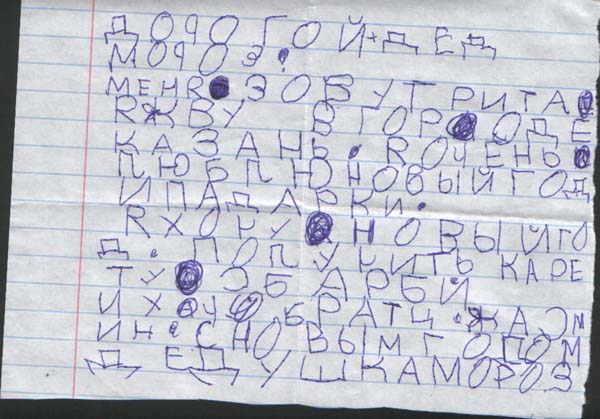 ДОРОГОЙ ДЕД
МОРОЗ!
МЕНЯ ЗОВУТ РИТА
Я ЖВУ В ГОРОДЕ
КАЗАНЬ. Я ОЧЕНЬ
ЛЮБЛЮ НОВЫЙ ГОД
И ПАДАРКИ.
Я ХОЧУ НОВЫЙ ГО
Д. ПОЛУЧИТЬ КАРЕ
ТУ БАРБИ
И ХОЧУ БРАТЦ. ЖАЭМ
ИН. С НОВЫМ ГОДОМ
ДЕДУШКА МОРОЗ